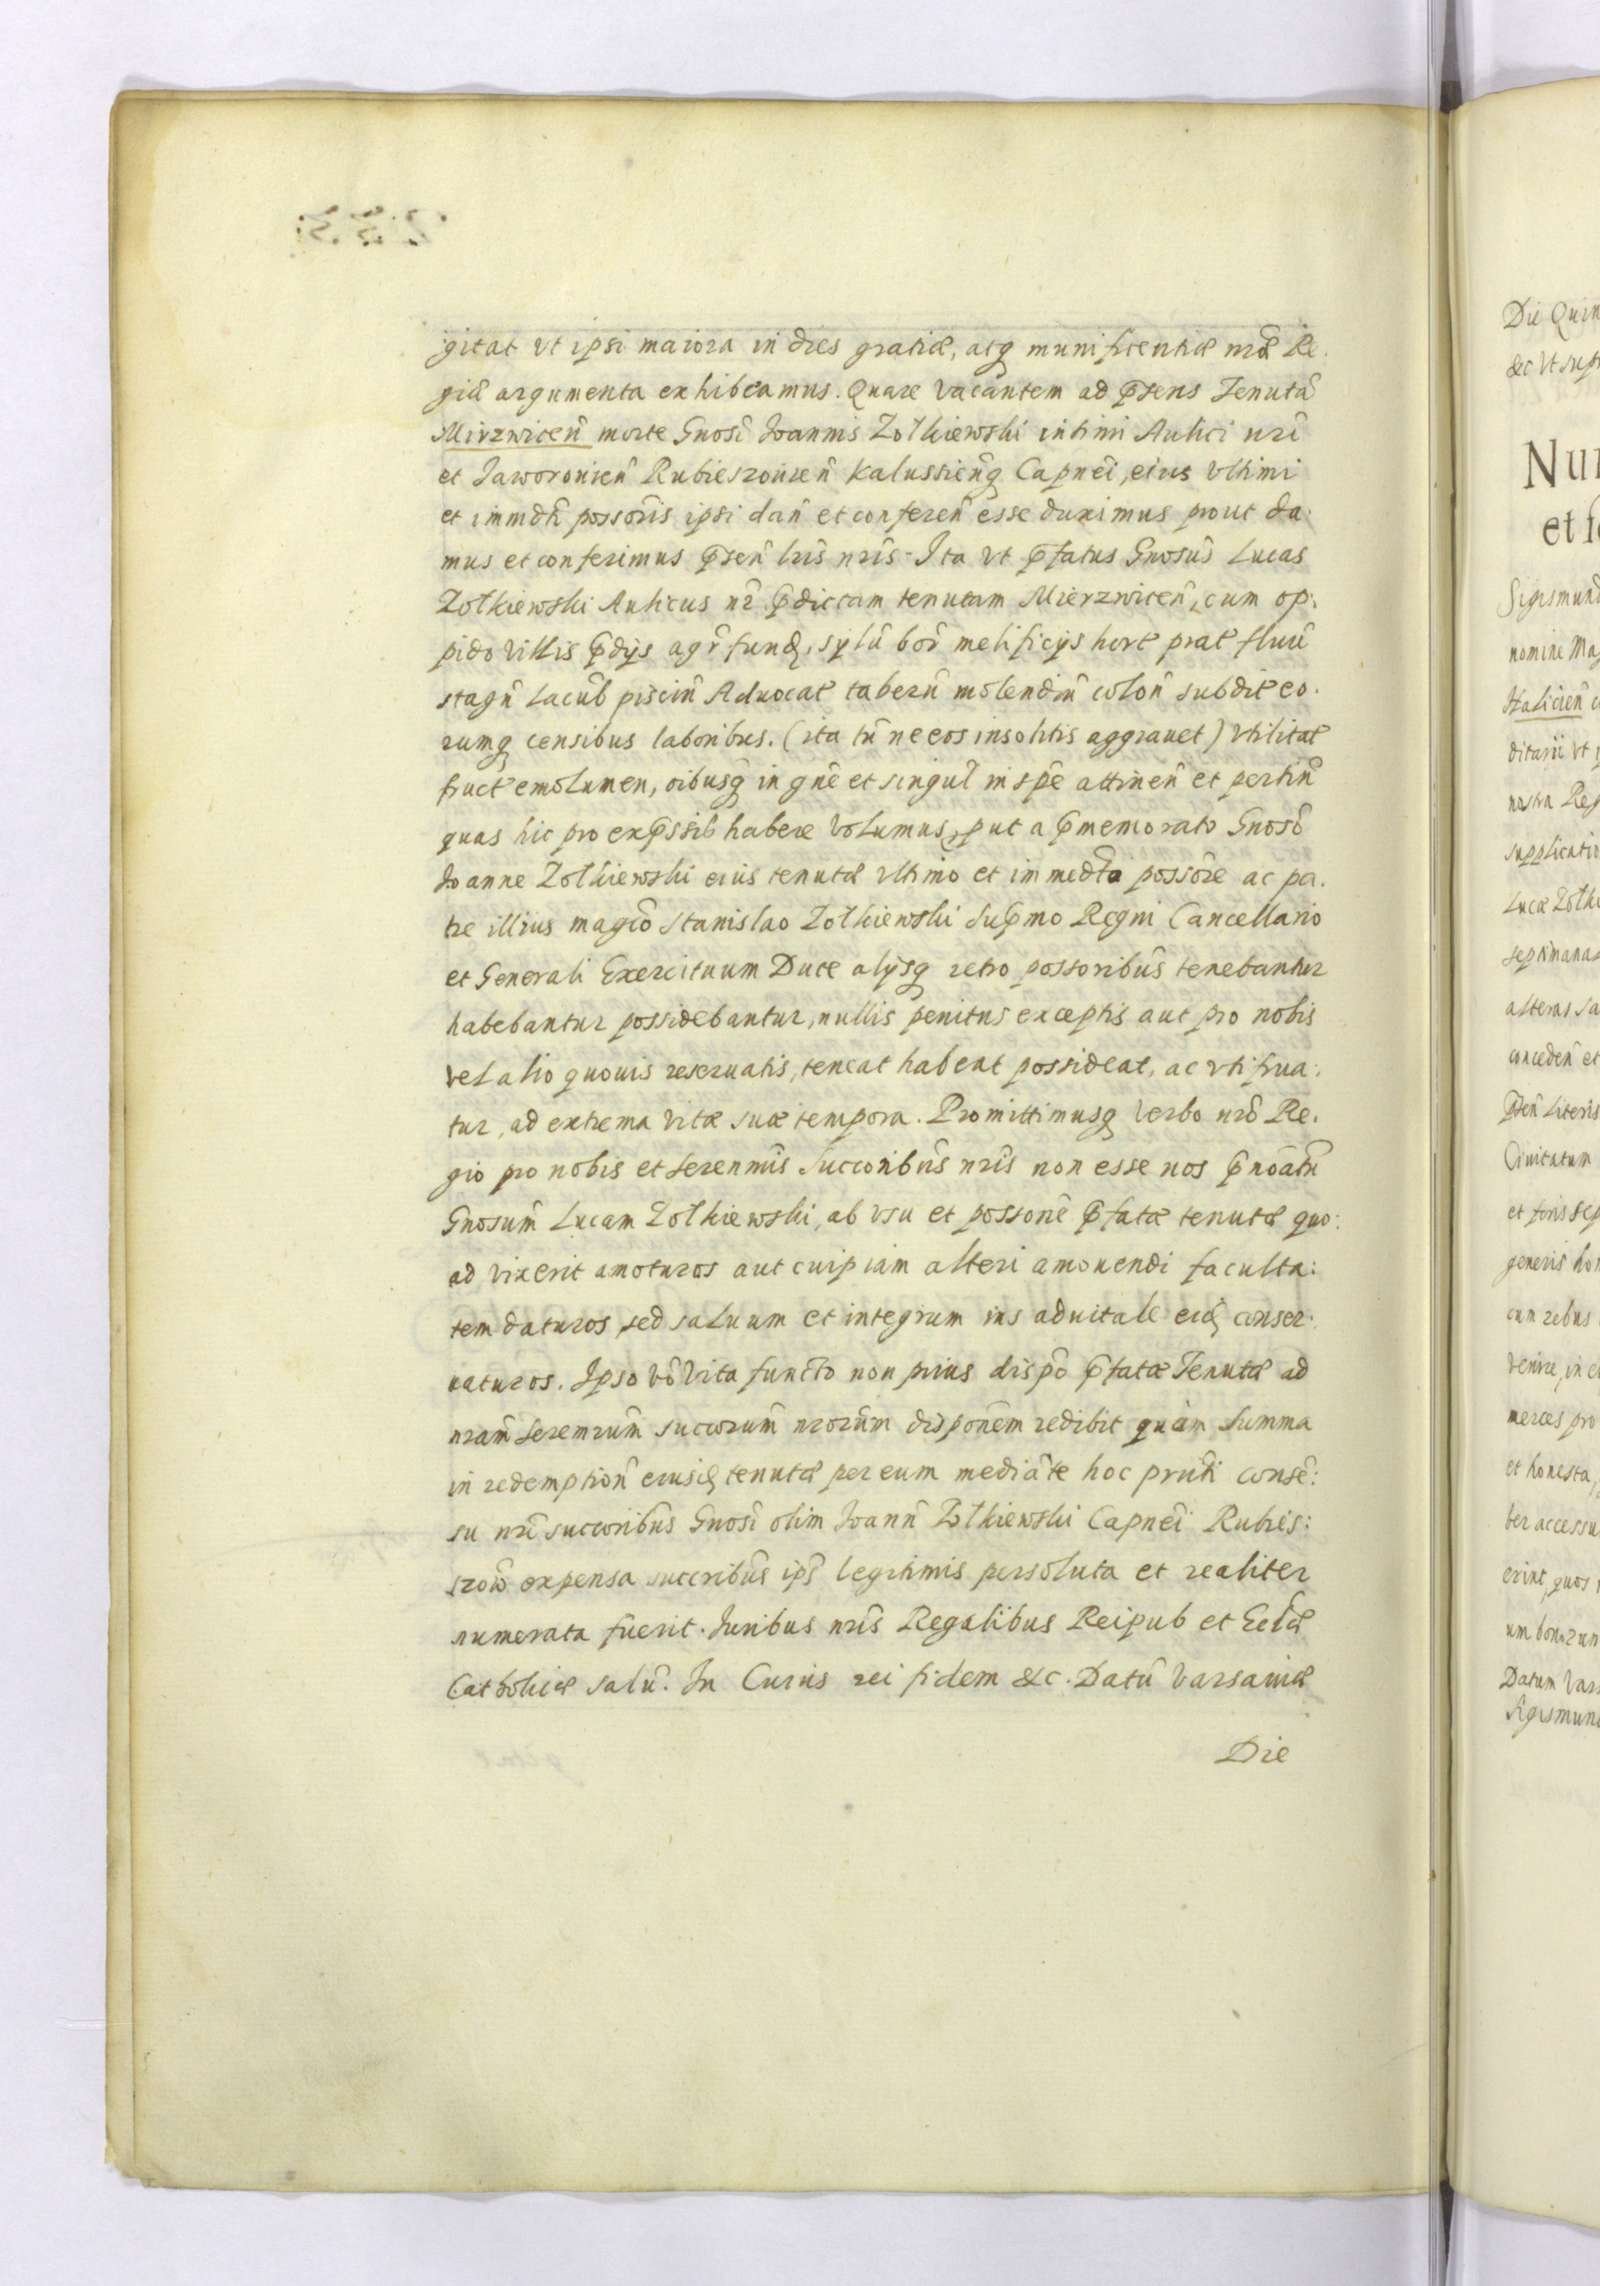 gitat vt ipsi maiora in dies gratiæ, atq munificentiæ nræ Re.
giæ argumenta exhibeamus. Quare vacantem ad p̃sens Tenutã
Mirzwiceñ morte Gnosĩ Joannis Zołkiewski intimi Aulici nrĩ
et Jaworouieñ Rubieszouieñ Kalussieñq Capneĩ, eius vltimi
et immdtĩ possoris̃ ipsi dañ et confereñ esse duximus prout da:
mus et conferimus p̃señ lris̃ nris̃. Ita vt p̃fatus Gnosus̃ Lucas
Zołkiewski Aulicus nr̃ p̃dictam tenutam Mierzwiceñ, cum op:
pido villis p̃dijs agr̃ fund, syłũ bor̃ melificijs hort prat fluũ
stagñ Lacub̃ pisciñ Aduocat taberñ molendiñ coloñ subdit eo.
rumq censibus laboribus. (ita tñ ne eos insolitis aggrauet) vtilitat
fruct emolumen, oĩbusq in gñe et singul̃ in spẽ attineñ et pertiñ
quas hic pro exp̃ssis habere volumus, put a p̃memorato Gnosõ
Joanne Zołkiewski eius tenutæ vltimo et immedtõ possorẽ ac pa.
tre illius magcõ Stanislao Zołkiewski Sup̃mo Regni Cancellario
et Generali Exercituum Duce alijsq retro possoribus̃ tenebantur
habebantur possidebantur, nullis penitus exceptis aut pro nobis
vel alio quouis reseruatis, teneat habeat possideat, ac vti frua:
tur, ad extrema vitæ suæ tempora. Promittimusq verbo nrõ Re.
gio pro nobis et Serenmis̃ Succoribus̃ nris̃ non esse nos p̃noatũ
Gnosum̃ Lucam Zołkiewski, ab vsu et possonẽ p̃fatæ tenutæ quo:
ad vixerit amoturos aut cuipiam alteri amouendi faculta:
tem daturos sed saluum et integrum ius aduitale eid conser:
uaturos. Ipso võ vita functo non prius dispõ p̃fatæ Tenutæ ad
nram̃ Seremrum̃ succorum̃ nrorum̃ disponẽm redibit quam summa
in redemptioñ eiusd tenutæ per eum mediãte hoc prñti consẽ:
su nrĩ succoribus̃ Gnosĩ olim Joanñ Zołkiewski Capneĩ Rubies:
szoũ expensa succribus̃ ips̃ legitimis persoluta et realiter
numerata fuerit. Juribus nris̃ Regalibus Reipub et Eclæ̃
Catholicæ saluũ. In Cuius rei fidem &c. Datũ Varsauiæ
Die
Die Quin
&c Vt supr
Nun
Sigismund
nomine Mag
Haliceñ
ditarii vt
nostra Reg
supplicatio
Lucæ Zołki
septimanas
alteras
conceden et
Literis
Ciuitatum
et foris sep
generis ho
cum rebus
venire, in
merces pro
et honesta
ber accessu
erint, quos
Datum Vars
Sigismund